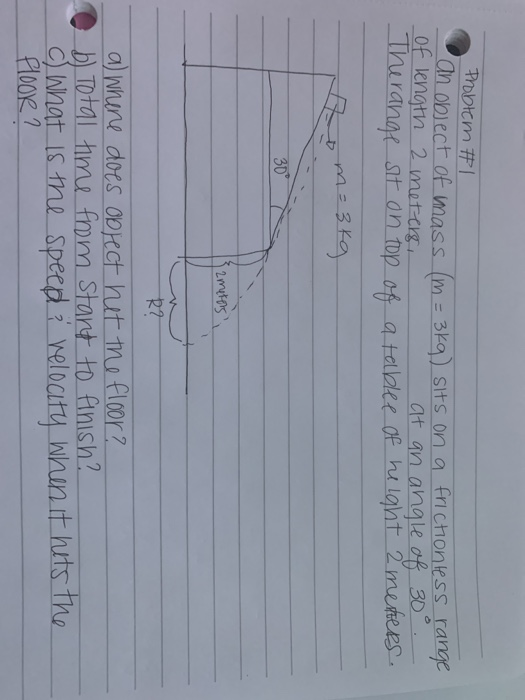 Problem #1
An object of mass (m = 3kg) sits on a frictionless range
of length 2 meters, at an angle of 30°.
The range sit on top of a table of height 2 meters.
m = 3kg
30°
2 meters
R?
a) Where does object het the floor?
b) Total time from start to finish?
c) What is the speed & velocity when it hets the
floor?